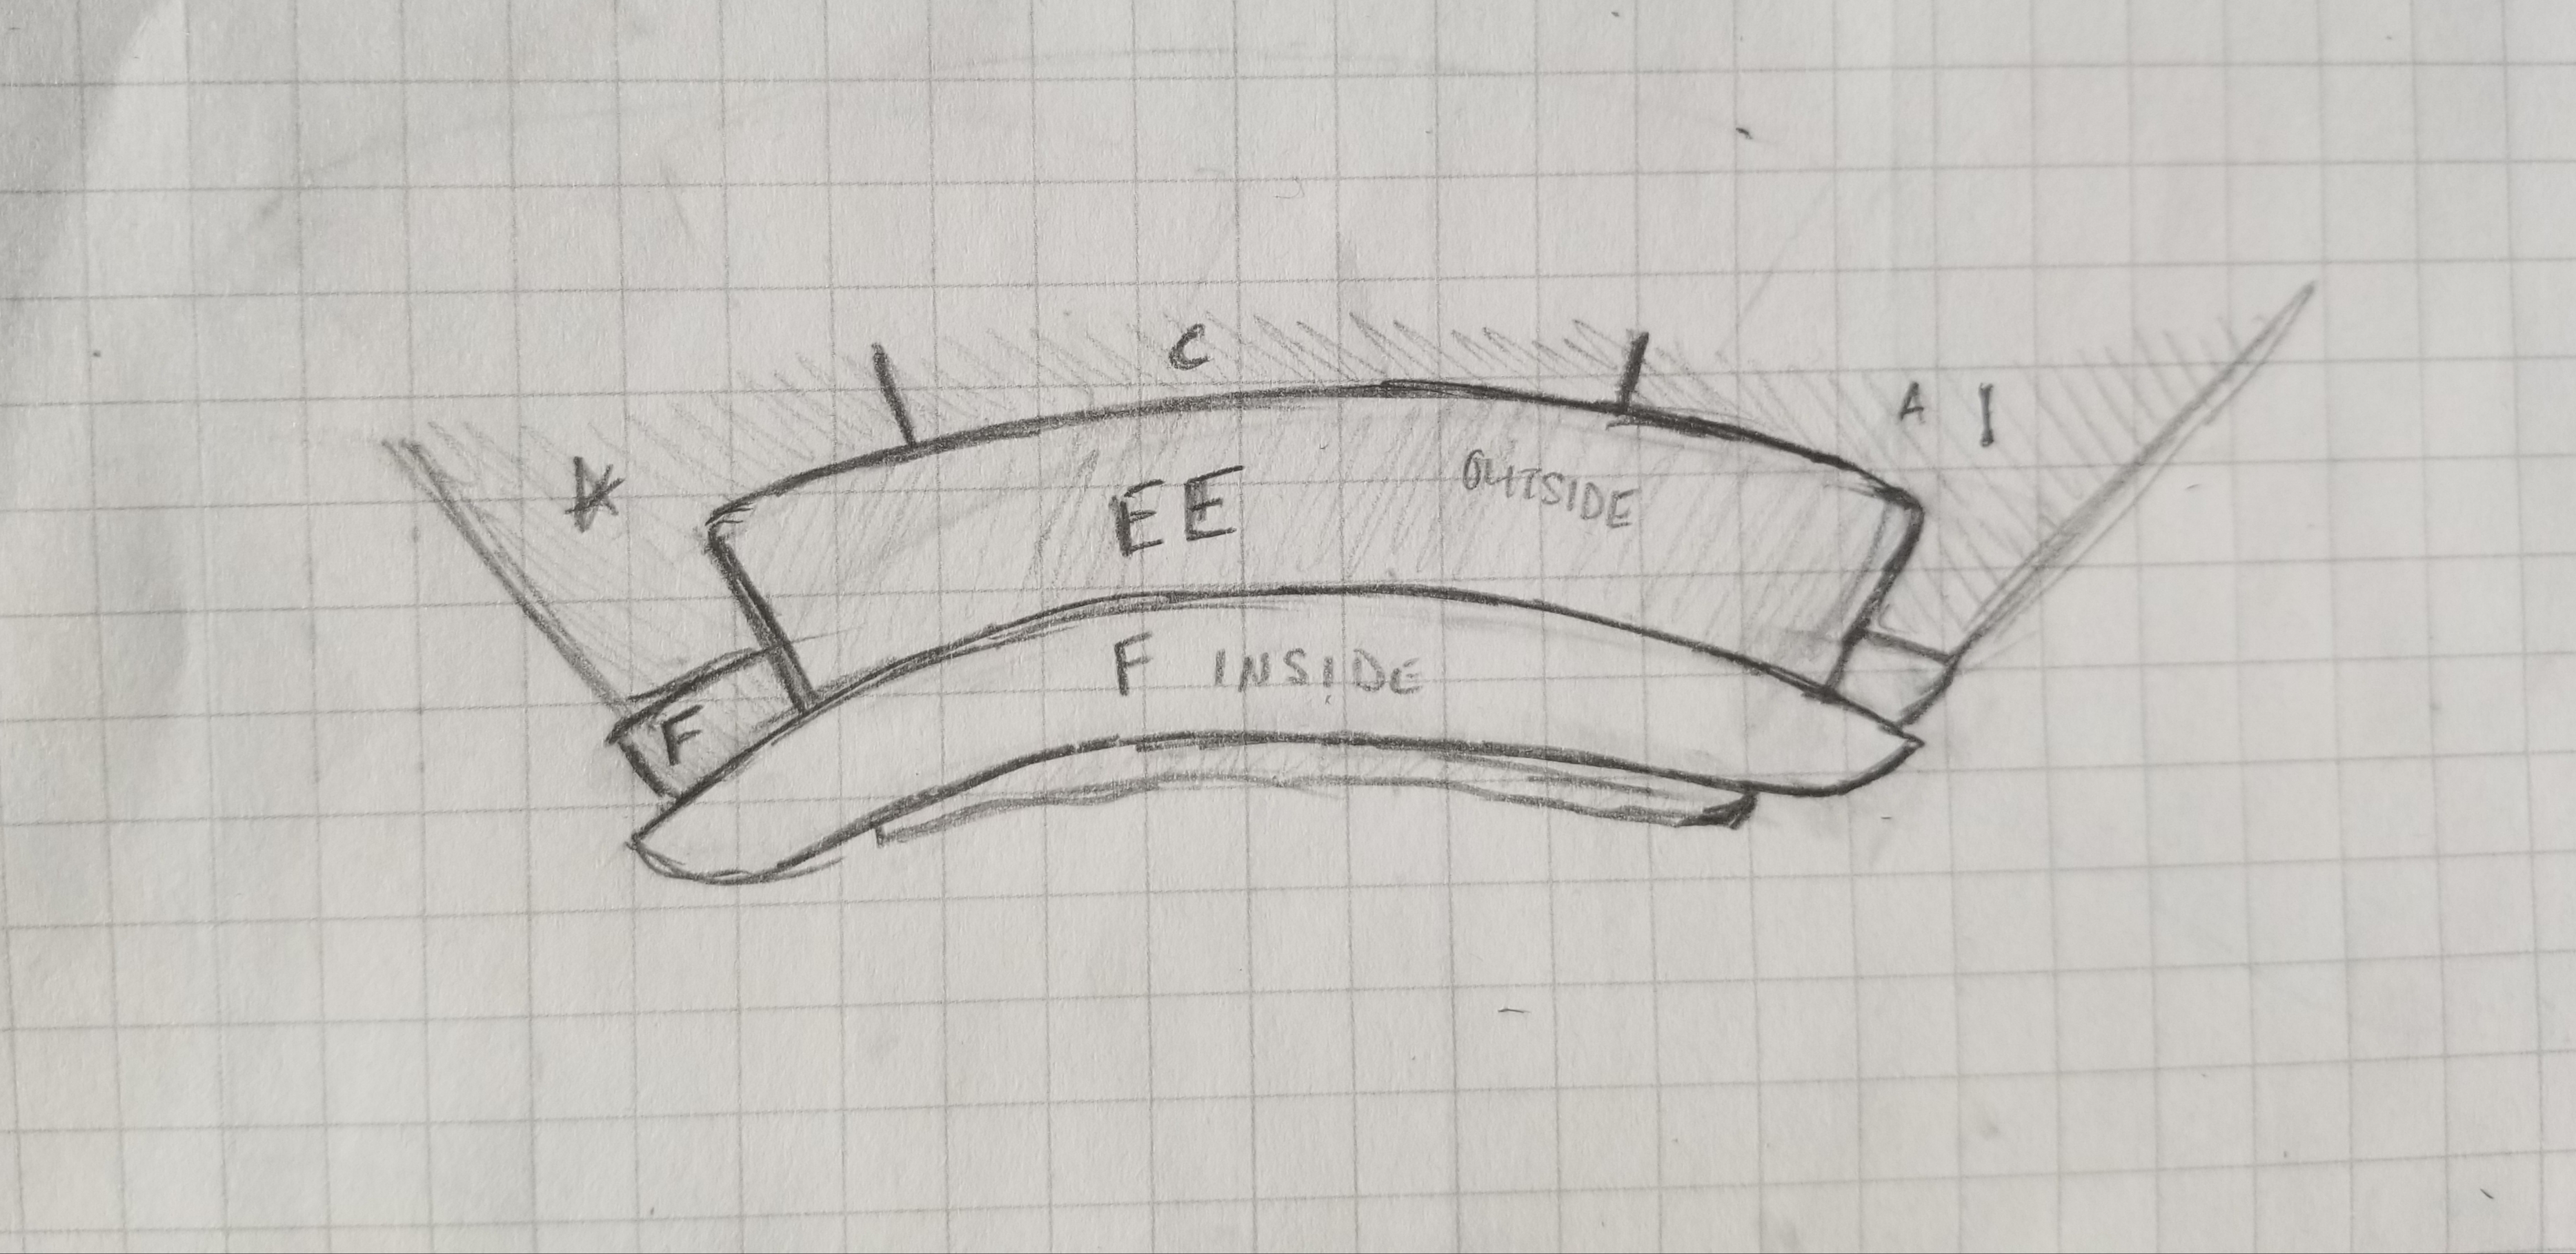 C
A
A I
EE
OUTSIDE
F INSIDE
F